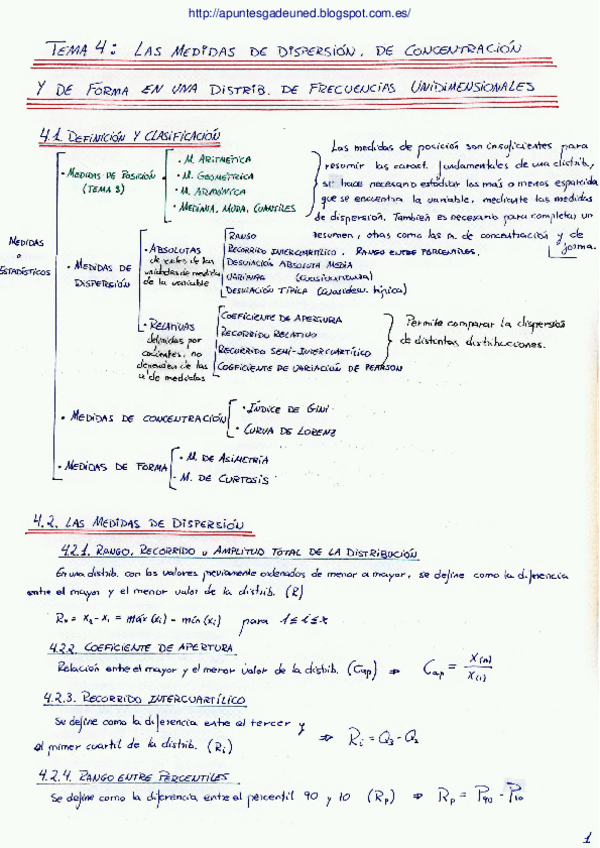 http://apuntesgadeuned.blogspot.com.es/
TEMA 4: LAS MEDIDAS DE DISPERSIÓN, DE CONCENTRACIÓN
Y DE FORMA EN UNA DISTRIB. DE FRECUENCIAS UNIDIMENSIONALES
4.1 DEFINICIÓN Y CLASIFICACIÓN
MEDIDAS o ESTADÍSTICOS
· MEDIDAS DE POSICIÓN (TEMA 3)
· M. ARITMÉTICA
· M. GEOMÉTRICA
· M. ARMÓNICA
· MEDIANA, MODA, CUANTILES
Las medidas de posición son insuficientes para
resumir las caract. fundamentales de una distrib,
se hace necesario estudiar las más o menos esparcida
que se encuentra la variable, mediante las medidas
de dispersión. También es necesario para completar un
resumen, otras como las m. de concentración y de
forma.
· MEDIDAS DE DISPERSIÓN
· ABSOLUTAS
de las
unidades de medida
de la variable
RANGO
RECORRIDO INTERCUARTÍLICO. RANGO ENTRE PERCENTILES.
DESVIACIÓN ABSOLUTA MEDIA
VARIANZA (cuasivarianza)
DESVIACIÓN TÍPICA (cuasidesv. típica)
· RELATIVAS
definidas por
cocientes, no
dependen de las
u' de medidas
COEFICIENTE DE APERTURA
RECORRIDO RELATIVO
RECORRIDO SEMI-INTERCUARTÍLICO
COEFICIENTE DE VARIACIÓN DE PEARSON
Permite comparar la dispersión
de distintas distribuciones.
· MEDIDAS DE CONCENTRACIÓN
· ÍNDICE DE GINI
· CURVA DE LORENZ
· MEDIDAS DE FORMA
· M. DE ASIMETRÍA
· M. DE CURTOSIS
4.2. LAS MEDIDAS DE DISPERSIÓN
4.2.1. RANGO, RECORRIDO o AMPLITUD TOTAL DE LA DISTRIBUCIÓN
En una distrib. con los valores previamente ordenados de menor a mayor, se define como la diferencia
entre el mayor y el menor valor de la distrib. (R)
= máx (xi) - mín (xi) para
4.2.2. COEFICIENTE DE APERTURA
Relación entre el mayor y el menor valor de la distrib. (Cap) ⇒ Cap = X(n) / X(1)
4.2.3. RECORRIDO INTERCUARTÍLICO
Se define como la diferencia entre el tercer y
el primer cuartil de la distrib. (Ri) ⇒ Ri = Q3 -
4.2.4. RANGO ENTRE PERCENTILES
Se define como la diferencia entre el percentil 90 y 10 (Rp) ⇒ Rp = P90 - P10
1